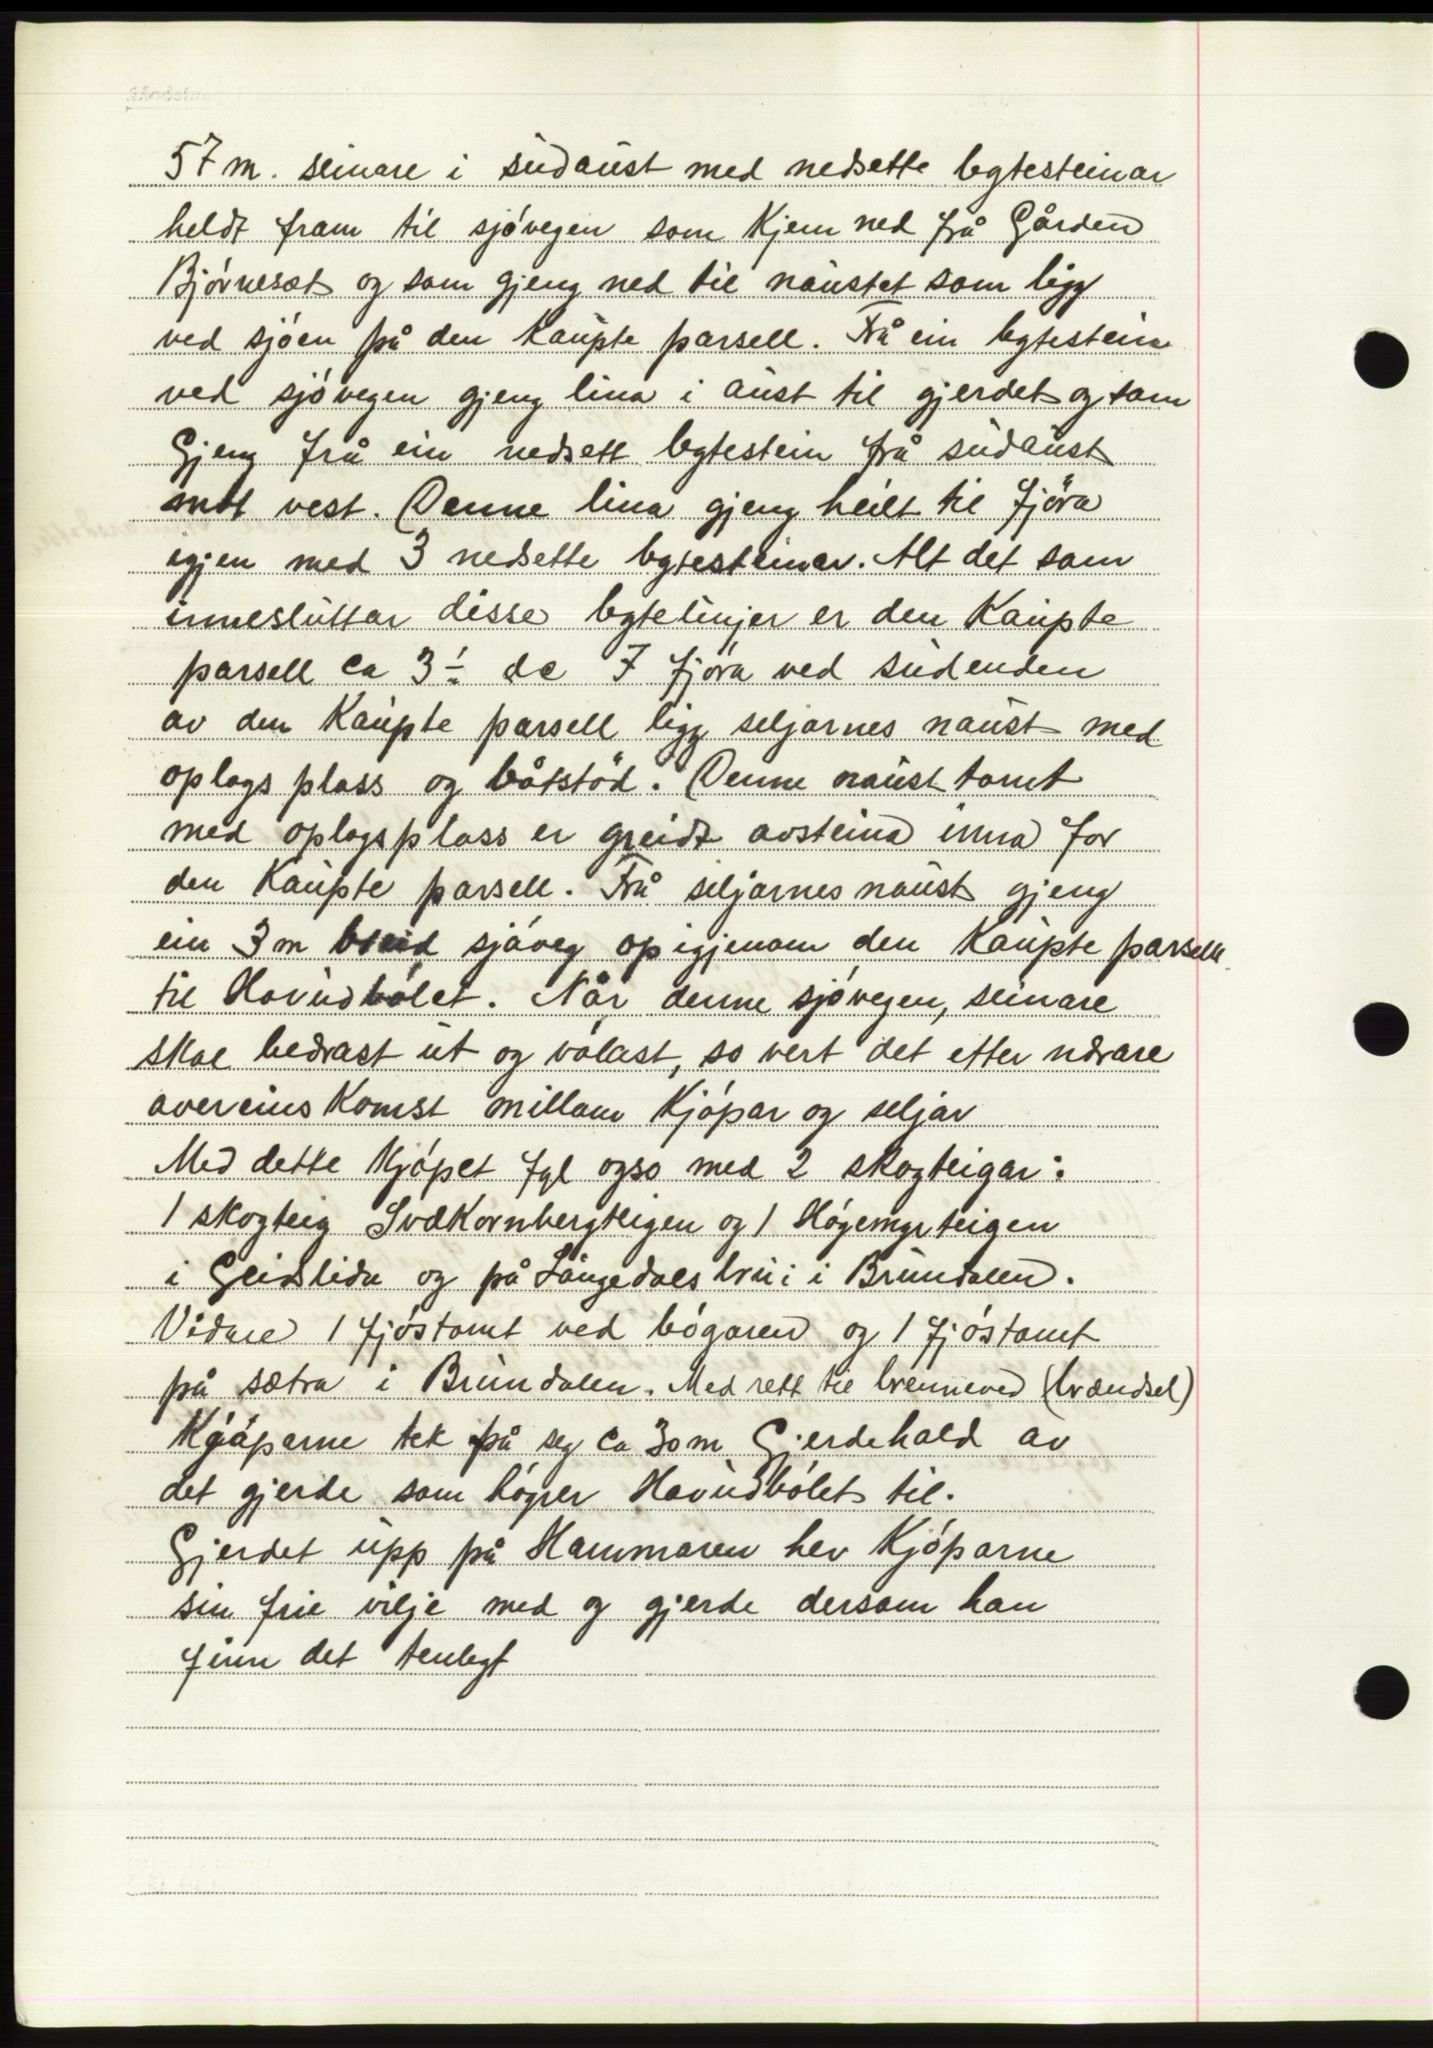 57 m. seinare i südaüst med nedsette bytesteinar
heldt fram til sjóvegen som Kjem ned frå Gården
Bjórneset og som gjeng ned til naüstet som ligg
ved sjóen på den Kaüpte parsell. Frå ein bytestein
ved sjóvegen gjeng lina i aüst til gjerdet og som
Gjeng frå ein nedsett bytestein frå südaüst
mot vest. Denne lina gjeng heilt til fjöra
igjen med 3 nedsette bytesteiner. Alt det som
inneslüttar disse bytelinjer er den Kaüpte
parsell ca 3 da I fjöra ved südenden
av den Kaüpte parsell ligg seljarnes naüst med
oplags plass og båtstöd. Denne naüst tomt
med oplagsplass er greidt avsteina inna for
den Kaüpte parsell. Frå seljarnes naüst gjeng
ein 3 m breid sjóveg op igjenom den Kaüpte parsell
til Havüdbólet. Når denne sjóvegen, seinare
skal bedrast üt og vólast, so vert det etter nærare
avereins Komst millam Kjópar og seljar
Med dette Kjópet fyl ogso med 2 skogteigar:
1 skogteig Svækornbergteigen og 1 Högemyrteigen
i Geislida og på Langedals brü i Bründalen.
Vidare 1 fjóstomt ved bógaren og 1 fjóstomt
på sætra i Bründalen. Med rett til brenneved (brændsel)
Kjóparne tek på seg ca 30 m Gjerdehald av
det gjerde som hóyrer Havüdbólet til.
Gjerdet üpp på Hammaren hev Kjóparne
sin frie vilje med og gjerde dersom han
finn det tenlegt